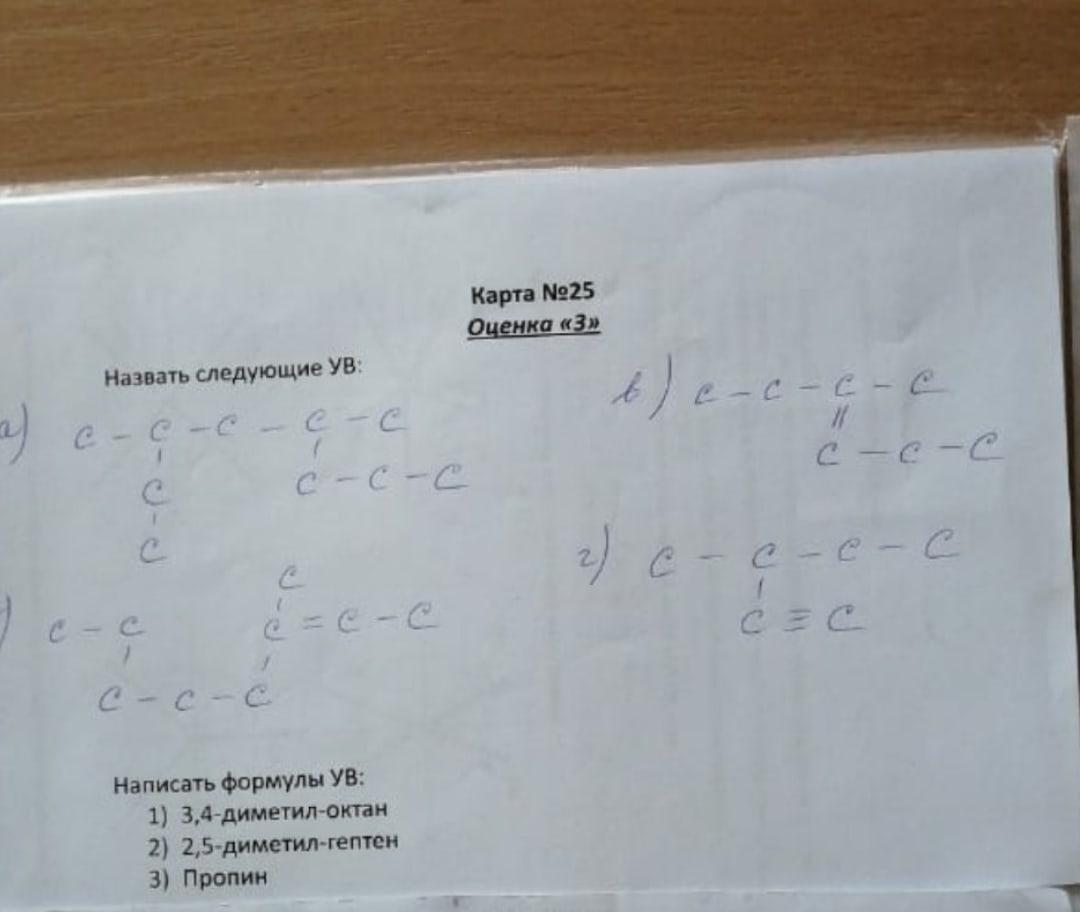 Карта №25
Оценка «3»
Назвать следующие УВ:
а) C - C - C - C - C
C C - C - C
C
C
в) C - C - C - C
||
C - C - C
C
) C - C C = C - C
C - C - C
г) C - C - C - C
C ≡ C
Написать формулы УВ:
1) 3,4-диметил-октан
2) 2,5-диметил-гептен
3) Пропин